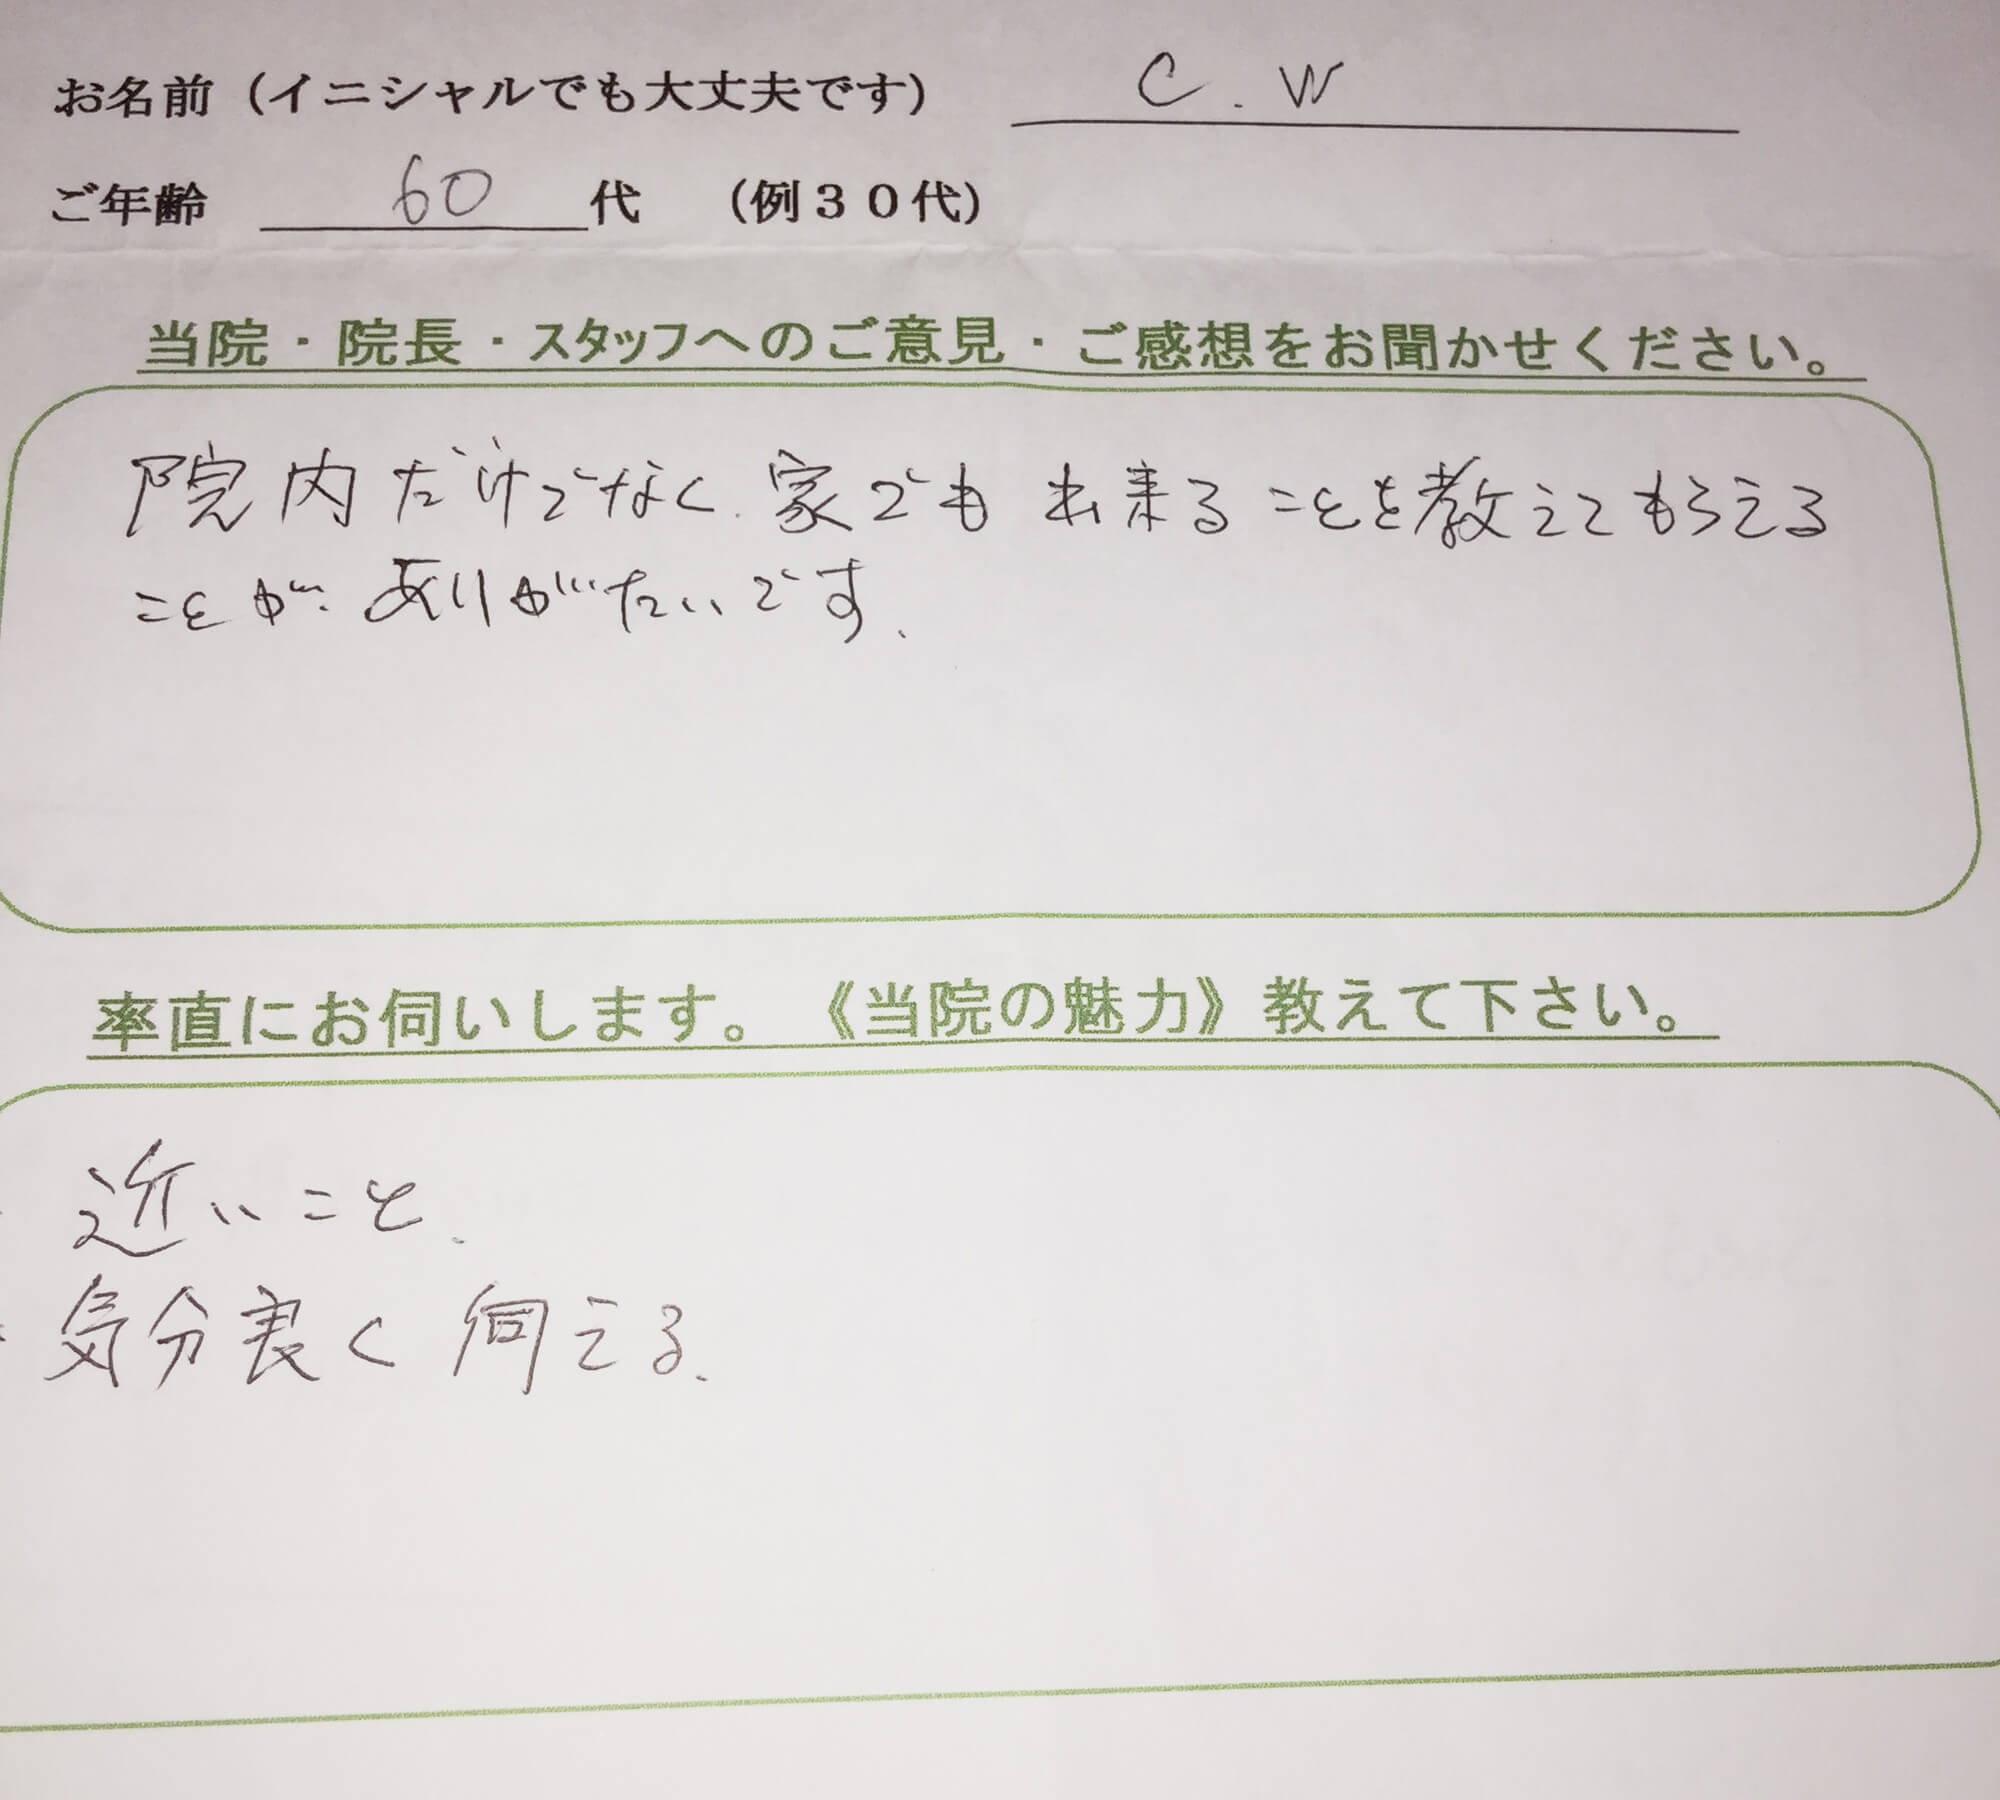 お名前（イニシャルでも大丈夫です） C.W
ご年齢 60 代 （例３０代）
当院・院長・スタッフへのご意見・ご感想をお聞かせください。
院内だけでなく、家でも出来ることを教えてもらえる
ことが、ありがたいです。
率直にお伺いします。《当院の魅力》教えて下さい。
・近いこと。
・気分良く伺える。